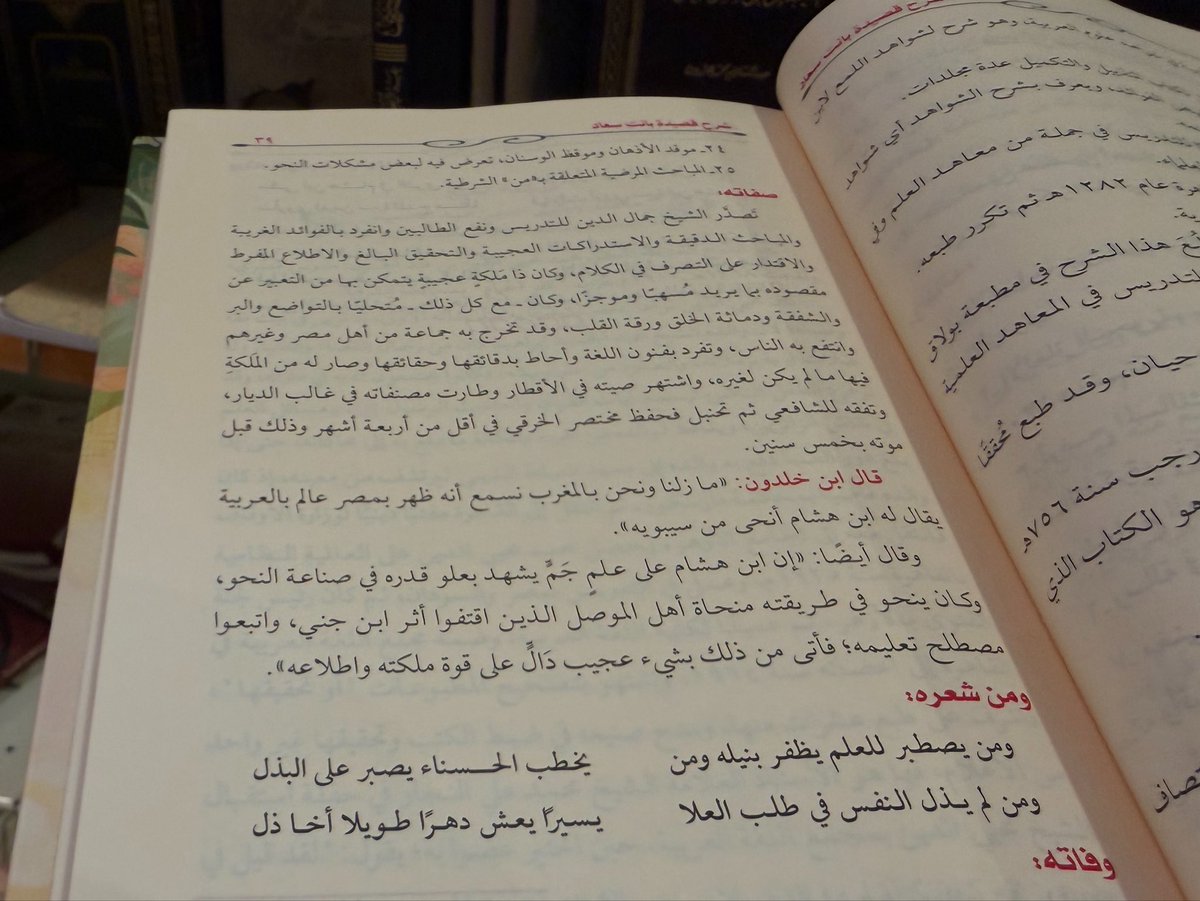 شرح قصيدة بانت سعاد
٣٩
٢٤ـ موقد الأذهان وموقظ الوسنان، تعرض فيه لبعض مشكلات النحو.
٢٥ـ المباحث المرضية المتعلقة بـ«من» الشرطية.
صفاته:
تَصدَّر الشيخ جمال الدين للتدريس ونفع الطالبين وانفرد بالفوائد الغريبة
والمباحث الدقيقة والاستدراكات العجيبة والتحقيق البالغ والاطلاع المفرط
والاقتدار على التصرف في الكلام، وكان ذا مَلكةٍ عجيبةٍ يتمكن بها من التعبير عن
مقصوده بما يريد مُسهبًا وموجزًا، وكان ـ مع كل ذلك ـ مُتحليًا بالتواضع والبر
والشفقة ودماثة الخلق ورقة القلب، وقد تخرج به جماعة من أهل مصر وغيرهم
وانتفع به الناس، وتفرد بفنون اللغة وأحاط بدقائقها وحقائقها وصار له من المَلَكةِ
فيها ما لم يكن لغيره، واشتهر صيته في الأقطار وطارت مصنفاته في غالب الديار،
وتفقه للشافعي ثم تحنبل فحفظ مختصر الخرقي في أقل من أربعة أشهر وذلك قبل
موته بخمس سنين.
قال ابن خلدون: «ما زلنا ونحن بالمغرب نسمع أنه ظهر بمصر عالم بالعربية
يقال له ابن هشام أنحى من سيبويه».
وقال أيضًا: «إن ابن هشام على علمٍ جَمٍّ يشهد بعلو قدره في صناعة النحو،
وكان ينحو في طريقته منحاة أهل الموصل الذين اقتفوا أثر ابن جني، واتبعوا
مصطلح تعليمه؛ فأتى من ذلك بشيء عجيب دَالٍّ على قوة ملكته واطلاعه».
ومن شعره:
ومن يصطبر للعلم يظفر بنيله ومن يخطب الحسناء يصبر على البذل
ومن لم يذل النفس في طلب العلا يسيرًا يعش دهرًا طويلا أخا ذل
وفاته:
شرح قصيدة بانت سعاد
وهو شرح لشواهد اللمع لابن
والتكميل عدة مجلدات.
ويعرف بشرح الشواهد أي شواهد
في جملة من معاهد العلم وفي
عام ١٣٨٢هـ ثم تكرر طبعه.
هذا الشرح في مطبعة بولاق
لتدريس في المعاهد العلمية
حيان، وقد طبع مُحققًا
رجب سنة ٧٥٦هـ
هو الكتاب الذي